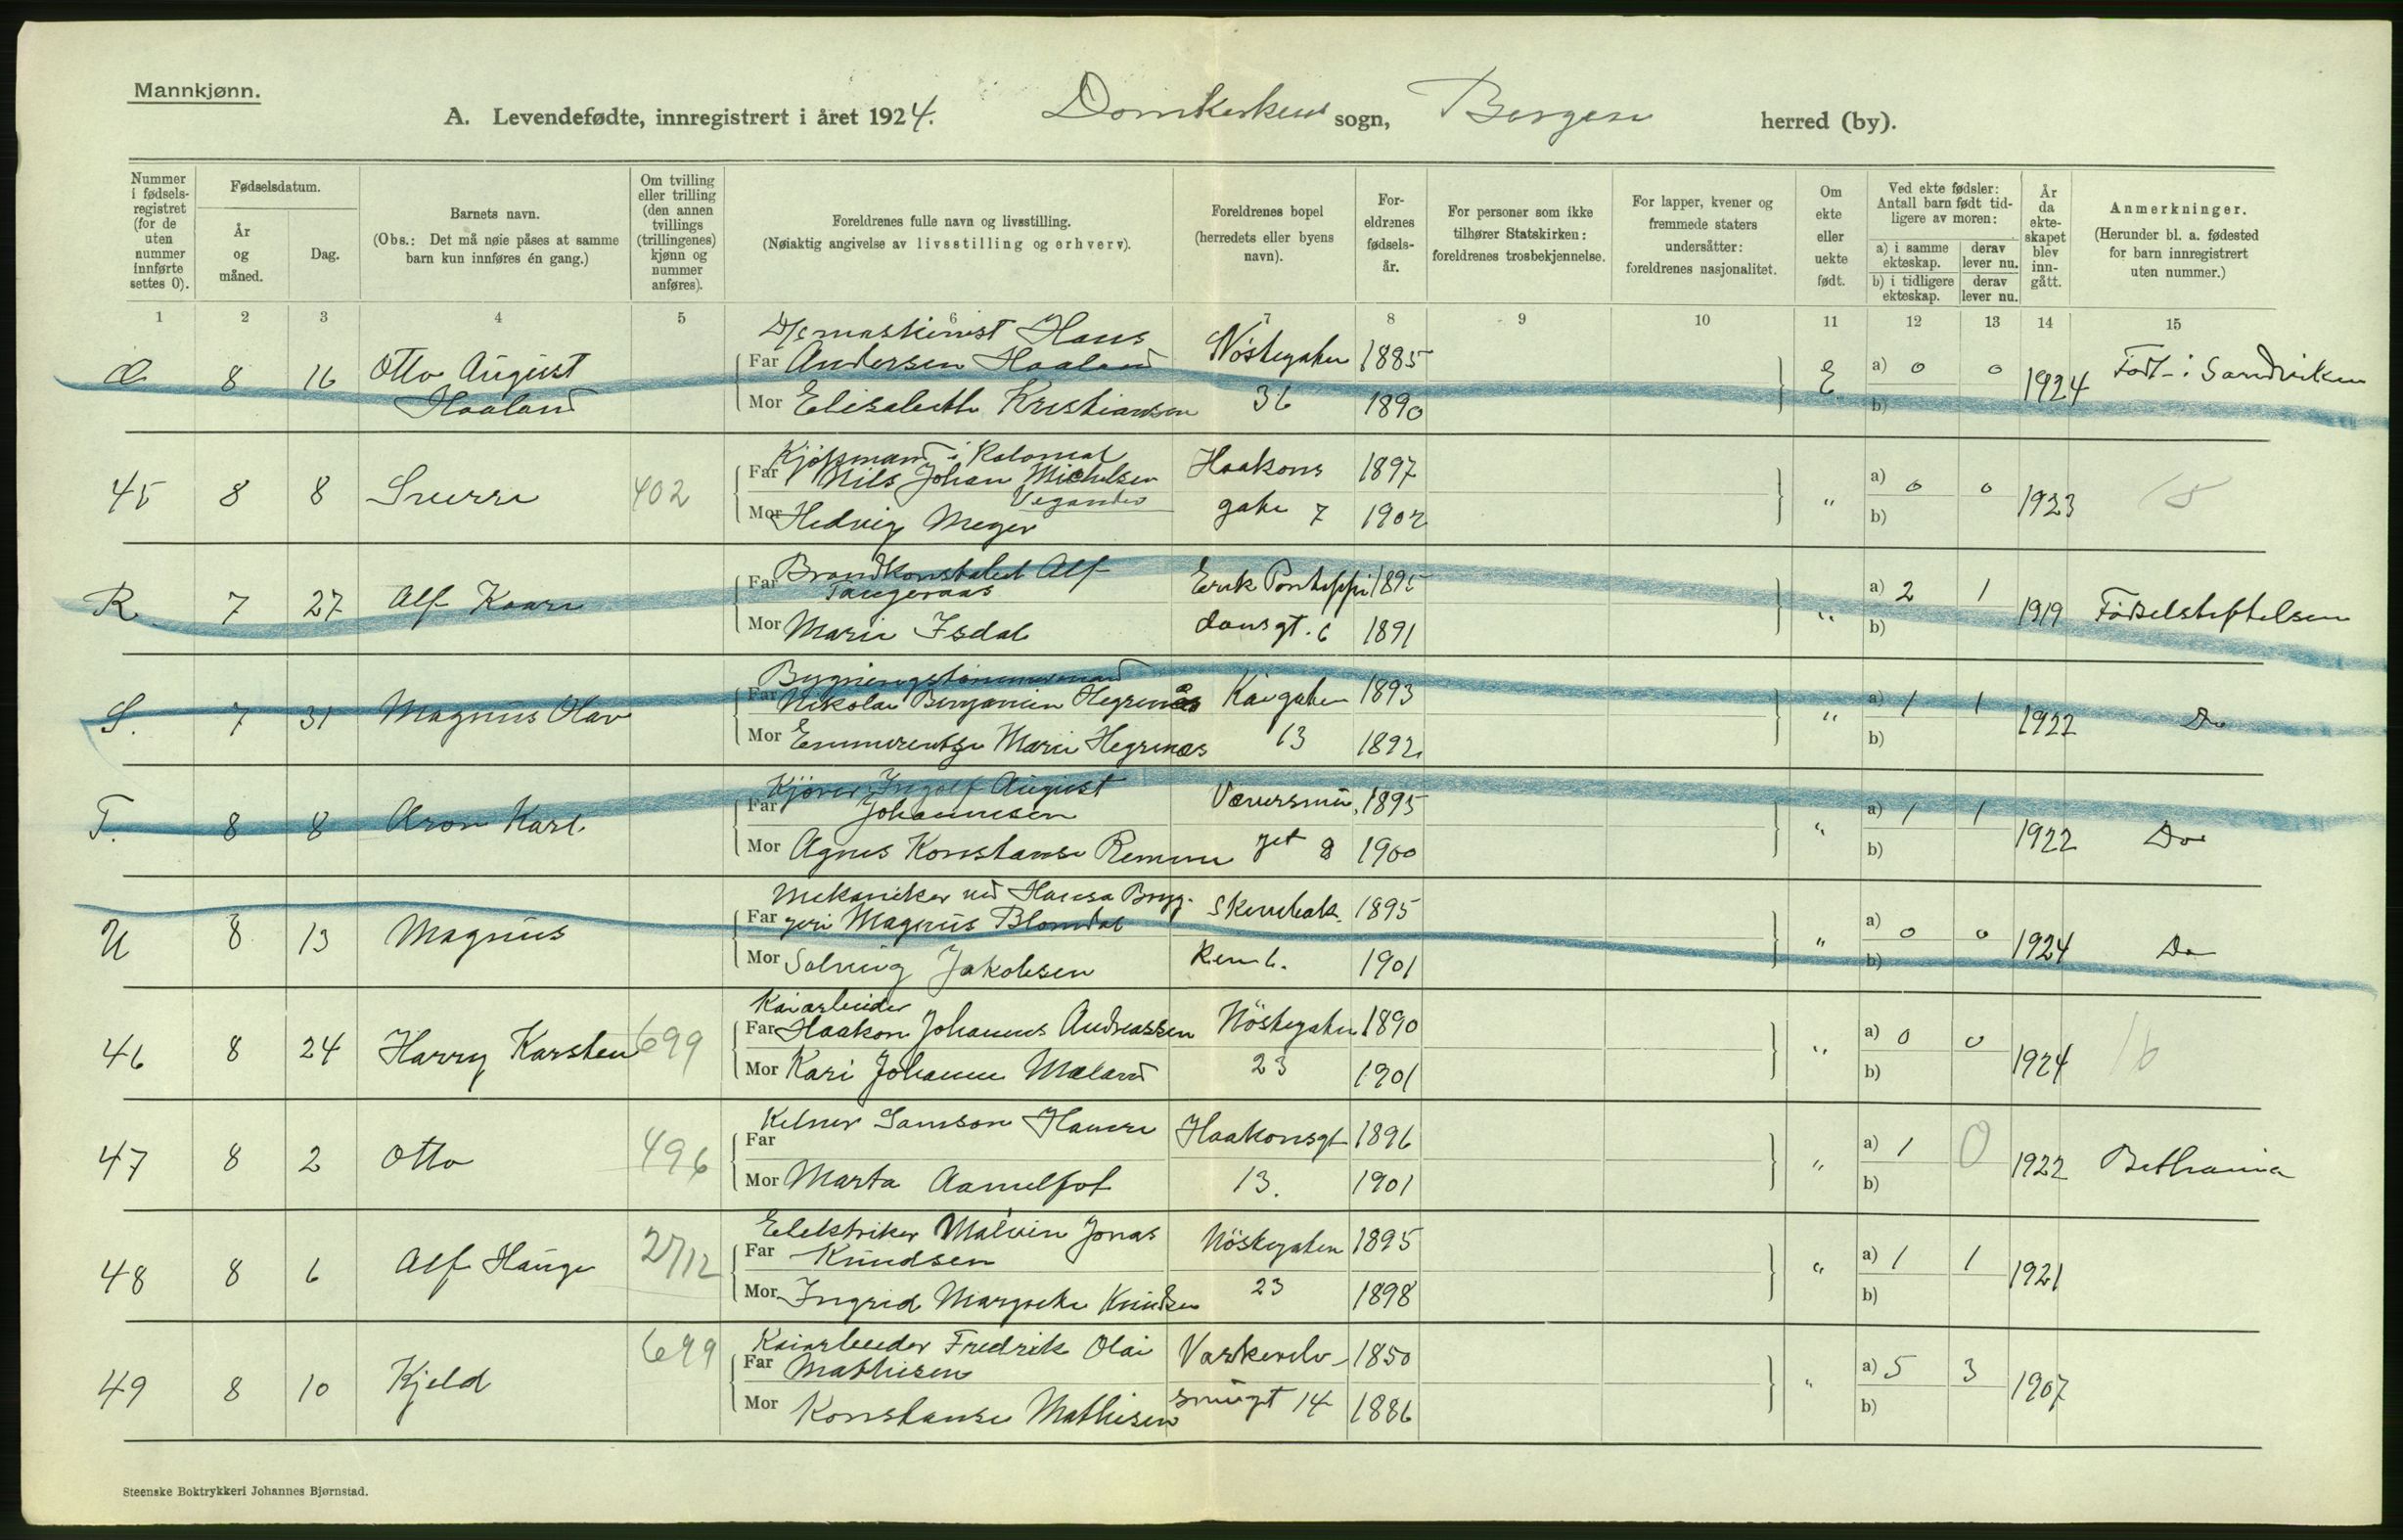 Mannkjønn.
A. Levendefødte, innregistrert i året 1924. Domkirkens sogn, Bergen herred (by).
Nummer i fødsels-registret (for de uten nummer innførte settes 0).
Fødselsdatum.
År og måned.
Dag.
Barnets navn.
(Obs.: Det må nøie påses at samme barn kun innføres én gang.)
Om tvilling eller trilling (den annen tvillings (trillingenes) kjønn og nummer anføres).
Foreldrenes fulle navn og livsstilling.
(Nøiaktig angivelse av livsstilling og erhverv).
Foreldrenes bopel (herredets eller byens navn).
For-eldrenes fødsels-år.
For personer som ikke tilhører Statskirken: foreldrenes trosbekjennelse.
For lapper, kvener og fremmede staters undersåtter: foreldrenes nasjonalitet.
Om ekte eller uekte født.
Ved ekte fødsler: Antall barn født tid-ligere av moren:
a) i samme ekteskap.
derav lever nu.
b) i tidligere ekteskap.
derav lever nu.
År da ekte-skapet blev inn-gått.
Anmerkninger.
(Herunder bl. a. fødested for barn innregistrert uten nummer.)
1 2 3 4 5 6 7 8 9 10 11 12 13 14 15
D/s maskinist Hans
8 16 Otto August Far Andersen Haaland Nöstegaten 1885 E a) 0 0 1924 Født i Sandviken
Haaland Mor Elisabeth Kristiansen 36 1890 b)
Kjøpmand i Kolonial
45 8 8 Sverre 402 Far Nils Johan Michelsen Haakons 1897 " a) 0 0 1923 15
Vegander
Mor Hedvig Meyer gate 7 1902 b)
Brandkonstabel Alf
R 7 27 Alf Kaare Far Tangeraas Erik Pontoppi 1895 " a) 2 1 1919 Fødselstiftelsen
Mor Marie Isdal dansgt. 6 1891 b)
Bygningstømmermand
S. 7 31 Magnus Olav Far Nikolai Benjamin Hegrenæs Kaigaten 1893 " a) 1 1 1922 Do
Mor Emmerentze Marie Hegrenæs 13 1892 b)
Kjörer Ingolf August
T. 8 8 Aron Karl Far Johannesen 1895 " a) 1 1 1922 Do
Mor Agnes Konstanse Remme get 8 1900 b)
Mekaniker ved Hansa Bryg-
U 8 13 Magnus Far geri Magnus Blomdal 1895 " a) 0 0 1924 Do
Mor Solveig Jakobsen 1901 b)
Kaiarbeider
46 8 24 Harry Karsten 699 Far Haakon Johannes Andreassen Nöstegaten 1890 " a) 0 0 1924 16
Mor Kari Johanne Mæland 23 1901 b)
Kelner Samson Hamre
47 8 2 Otto 496 Far Haakonsgt 1896 " a) 1 0 1922 Bethania
Mor Marta Aamelfot 13. 1901 b)
Elektriker Malvin Jonas
48 8 6 Alf Hauge 27/12 Far Knudsen Nöstegaten 1895 " a) 1 1 1921
Mor Ingrid Margrethe Knudsen 23 1898 b)
Kaiarbeider Fredrik Olai
49 8 10 Kjeld 699 Far Mathisen 1850 " a) 5 3 1907
Mor Konstanse Mathisen smuget 14 1886 b)
Steenske Boktrykkeri Johannes Bjørnstad.